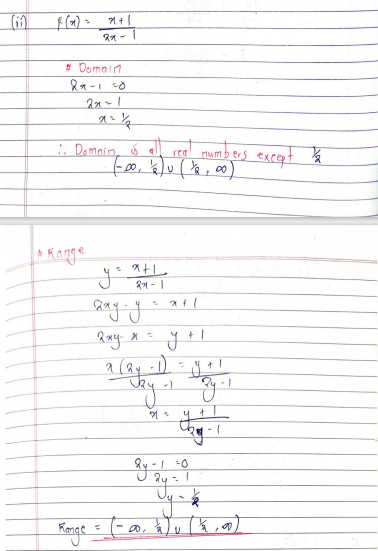 (ii) f(x) = x+1 / 2x-1
# Domain
2x-1 = 0
2x = 1
x = 1/2
∴ Domain is all real numbers except 1/2
(-∞, 1/2) ∪ (1/2, ∞)
# Range
y = x+1 / 2x-1
2xy - y = x+1
2xy - x = y + 1
x(2y-1) / 2y-1 = y+1 / 2y-1
x = y+1 / 2y-1
2y-1 = 0
2y = 1
y = 1/2
Range = (-∞, 1/2) ∪ (1/2, ∞)